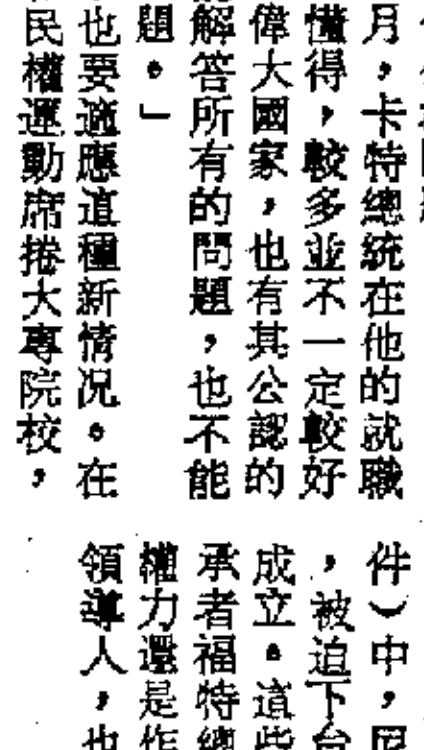 月，卡特總統在他的就職
懂得，較多並不一定較好
偉大國家，也有其公認的
解答所有的問題，也不能
題。」
也要適應這種新情况。在
民權運動席捲大專院校，
件）中，因
，被迫下台
成立。這些
承者福特總
權力還是作
領導人，也